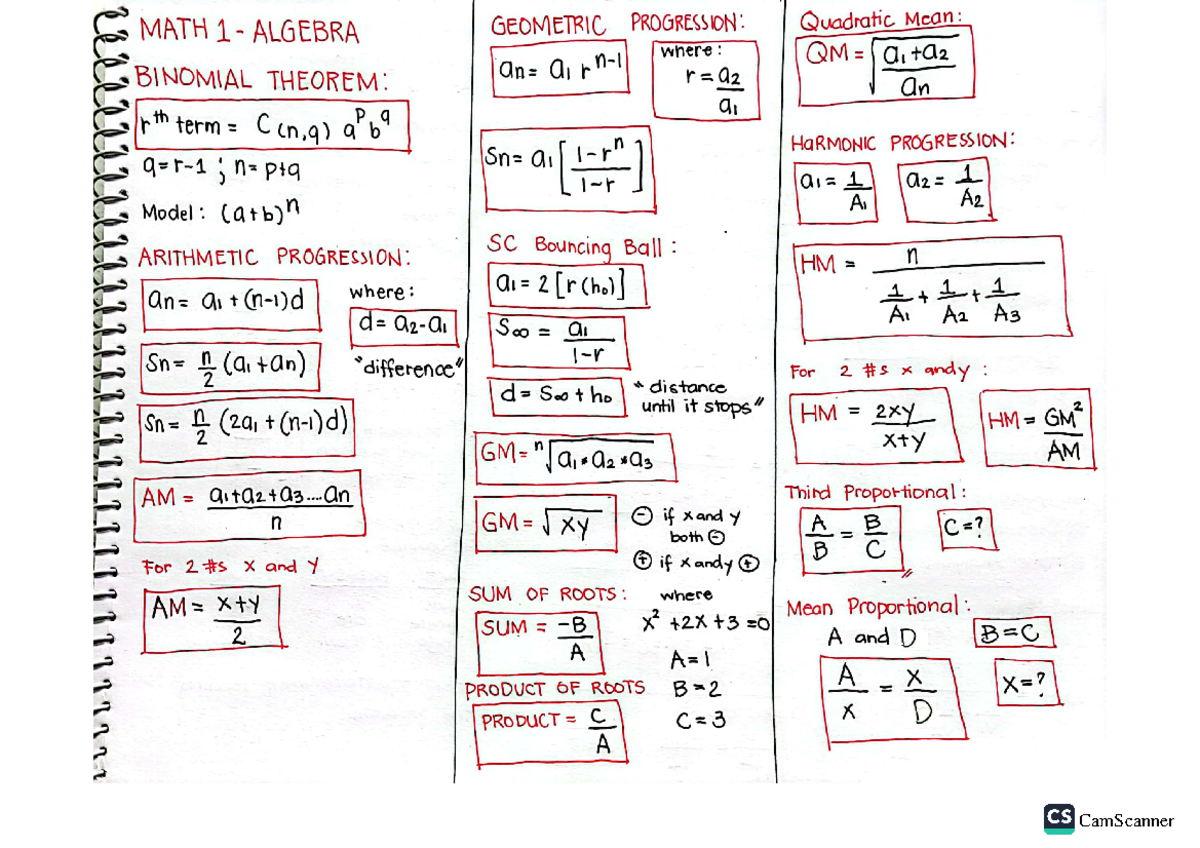 MATH 1 - ALGEBRA
BINOMIAL THEOREM:
rth term = C(n,q) a^p b^q
q=r-1 ; n=p+q
Model: (a+b)^n
ARITHMETIC PROGRESSION:
an= a1+(n-1)d
where:
d= a2-a1
"difference"
Sn= n/2 (a1+an)
Sn= n/2 (2a1+(n-1)d)
AM = a1+a2+a3....an / n
For 2 #s x and y
AM= x+y / 2
GEOMETRIC PROGRESSION:
an= a1 r^n-1
where:
r= a2/a1
Sn= a1 [1-r^n / 1-r]
SC Bouncing Ball:
a1= 2[r(h0)]
S∞ = a1 / 1-r
d= S∞+h0
"distance
until it stops"
GM= n√a1*a2*a3
GM= √xy
⊖ if x and y
both ⊖
⊕ if x and y ⊕
SUM OF ROOTS:
SUM = -B/A
where
x²+2x+3=0
A=1
B=2
C=3
PRODUCT OF ROOTS
PRODUCT = C/A
Quadratic Mean:
QM= √a1+a2 / an
HaRMONIC PROGRESSION:
a1= 1/A1
a2= 1/A2
HM = n / 1/A1 + 1/A2 + 1/A3
For 2 #s x and y :
HM = 2xy / x+y
HM= GM² / AM
Third Proportional:
A/B = B/C
C=?
Mean Proportional:
A and D
B=C
A/x = x/D
X=?
CS CamScanner